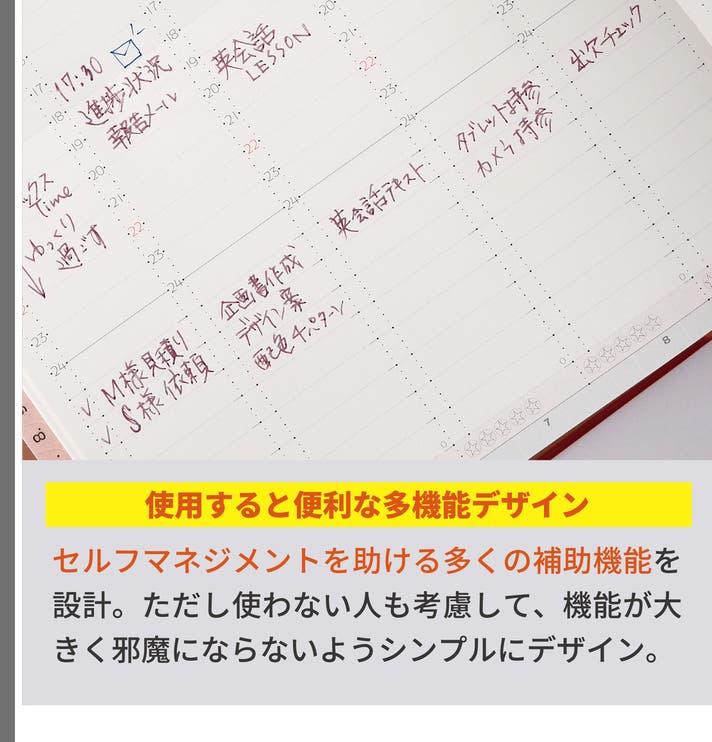 17:30
進捗状況
報告メール
英会話
LESSON
出欠チェック
タブレット持参
カメラ持参
英会話テキスト
ックス
Time
ゆっくり
過ごす
企画書作成
デザイン案
配色4パターン
M様見積り
S様依頼
17
18
19
20
21
22
23
24
17
18
19
20
21
22
23
24
20
21
22
23
24
24
23
24
0
0
0
7
8
8
使用すると便利な多機能デザイン
セルフマネジメントを助ける多くの補助機能を
設計。ただし使わない人も考慮して、機能が大
きく邪魔にならないようシンプルにデザイン。